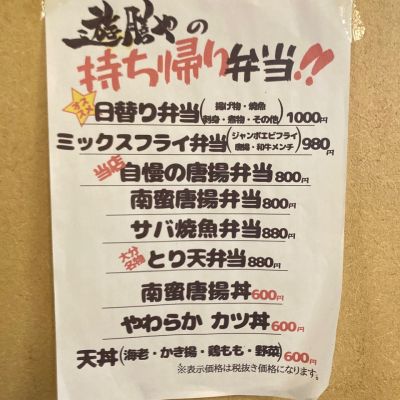 遊膳やの
持ち帰り弁当!!
オススメ
日替り弁当(揚げ物・焼魚 刺身・煮物・その他)1000円
ミックスフライ弁当(ジャンボエビフライ 唐揚・和牛メンチ)980円
当店
自慢の唐揚弁当800円
南蜜唐揚弁当800円
サバ焼魚弁当880円
大分名物
とり天弁当880円
南蜜唐揚丼600円
やわらか カツ丼600円
天丼(海老・かき揚・鶏もも・野菜)600円
※表示価格は税抜き価格になります。